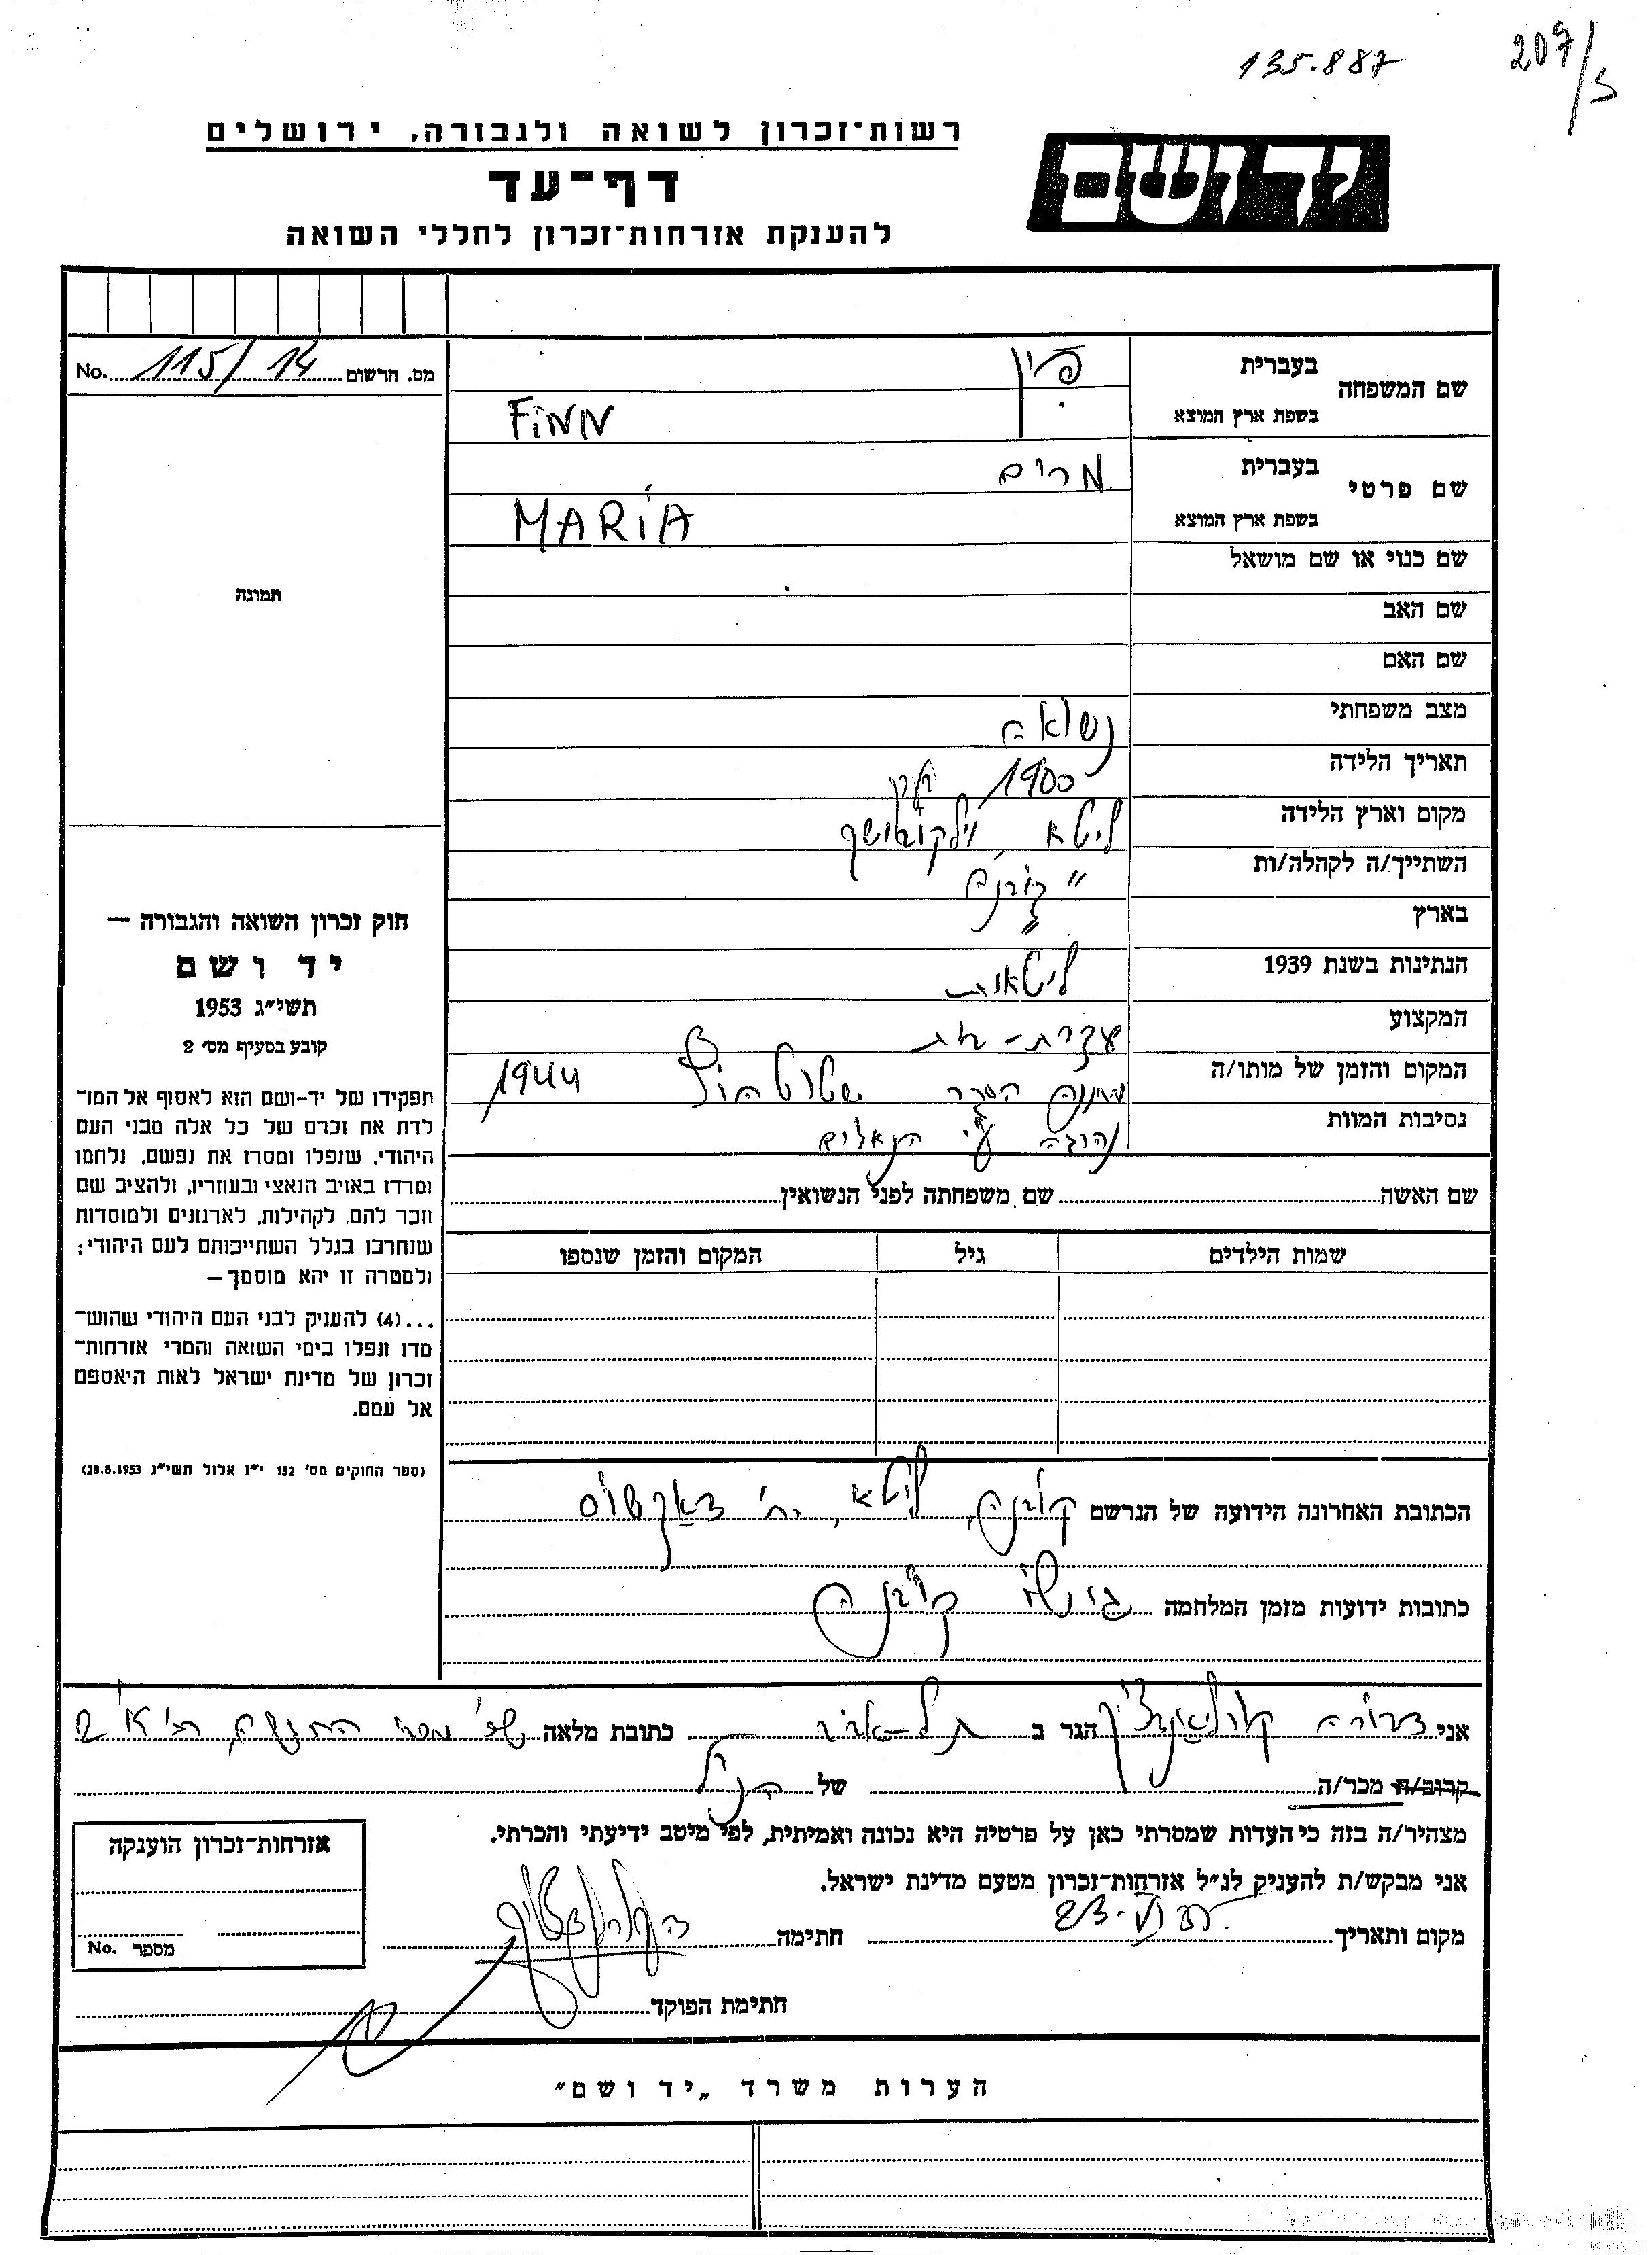 207/5
135.887
יד ושם
רשות־זכרון לשואה ולגבורה, ירושלים
דף־עד
להענקת אזרחות־זכרון לחללי השואה
No. 115/14 מס. הרשום
שם המשפחה
בעברית פין
בשפת ארץ המוצא FINN
שם פרטי
בעברית מרים
בשפת ארץ המוצא MARIA
שם כנוי או שם מושאל
שם האב
שם האם
מצב משפחתי נשואה
תאריך הלידה 1900
מקום וארץ הלידה ליטא
השתייך/ה לקהלה/ות " קובנה
בארץ "
הנתינות בשנת 1939 ליטאית
המקצוע עקרת-בית
המקום והזמן של מותו/ה מחנה הסגר שטוטהוף 1944
נסיבות המוות נהרגה ע"י הנאצים
שם האשה שם משפחתה לפני הנשואין
שמות הילדים גיל המקום והזמן שנספו
תמונה
חוק זכרון השואה והגבורה —
יד ושם
תשי״ג 1953
קובע בסעיף מס׳ 2
תפקידו של יד-ושם הוא לאסוף אל המו־
לדת את זכרם של כל אלה מבני העם
היהודי, שנפלו ומסרו את נפשם, נלחמו
ומרדו באויב הנאצי ובעוזריו, ולהציב שם
וזכר להם, לקהילות, לארגונים ולמוסדות
שנחרבו בגלל השתייכותם לעם היהודי;
ולמטרה זו יהא מוסמך —
...(4) להעניק לבני העם היהודי שהוש־
מדו ונפלו בימי השואה והמרי אזרחות־
זכרון של מדינת ישראל לאות היאספם
אל עמם.
(ספר החוקים מס׳ 132 י״ז אלול תשי״ג 28.8.1953)
הכתובת האחרונה הידועה של הנרשם קובנה, ליטא, רח'
כתובות ידועות מזמן המלחמה גיטו קובנה
אני דבורה הגר ב תל-אביב כתובת מלאה
קרוב/ה מכר/ה של הנ"ל
מצהיר/ה בזה כי העדות שמסרתי כאן על פרטיה היא נכונה ואמיתית, לפי מיטב ידיעתי והכרתי.
אני מבקש/ת להעניק לנ״ל אזרחות־זכרון מטעם מדינת ישראל.
מקום ותאריך חתימה
חתימת הפוקד
אזרחות־זכרון הוענקה
No. מספר
הערות משרד „יד ושם״